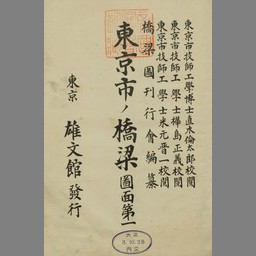 東京市技師工學博士直木倫太郎校閲
東京市技師工學士樺島正義校閲
東京市技師工學士米元晋一校閲
橋梁圖刊行會編纂
東京市ノ橋梁圖面第一
東京 雄文館發行